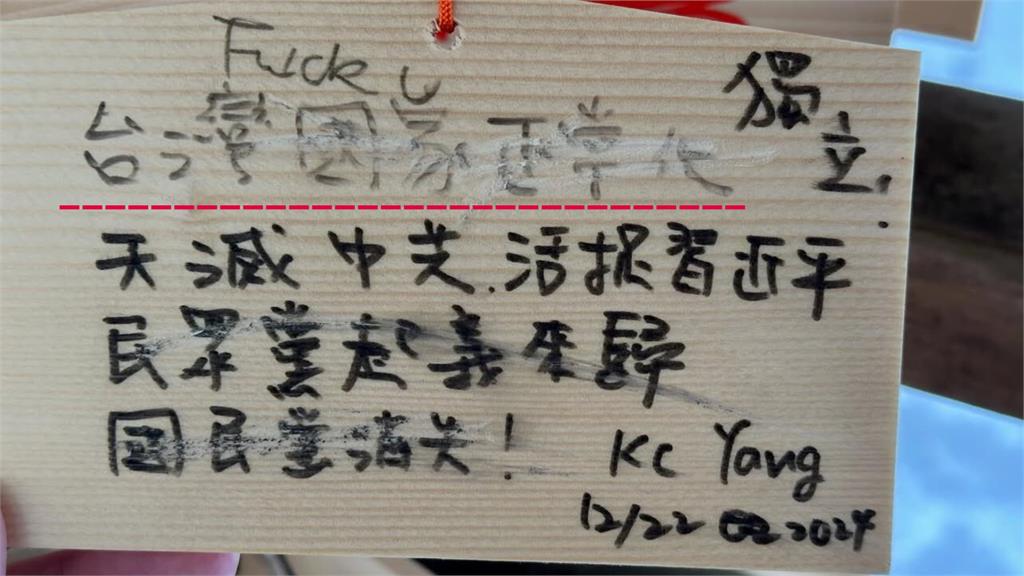 Fuck U
台灣國家正常化
獨立.
天滅中共.活捉習近平
民眾黨起義來歸
國民黨消失!
KC Yang
12/22 2024